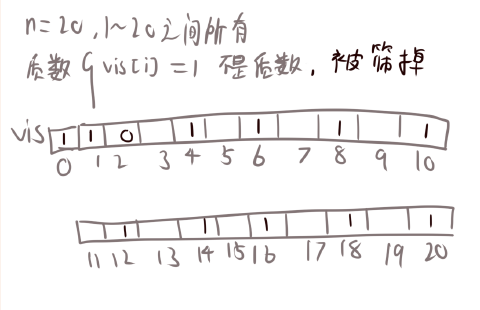 n=20,1~20之间所有
质数 vis[i]=1 不是质数,被筛掉
vis 1 1 0 1 1 1 1
0 1 2 3 4 5 6 7 8 9 10
1 1 1 1 1
11 12 13 14 15 16 17 18 19 20